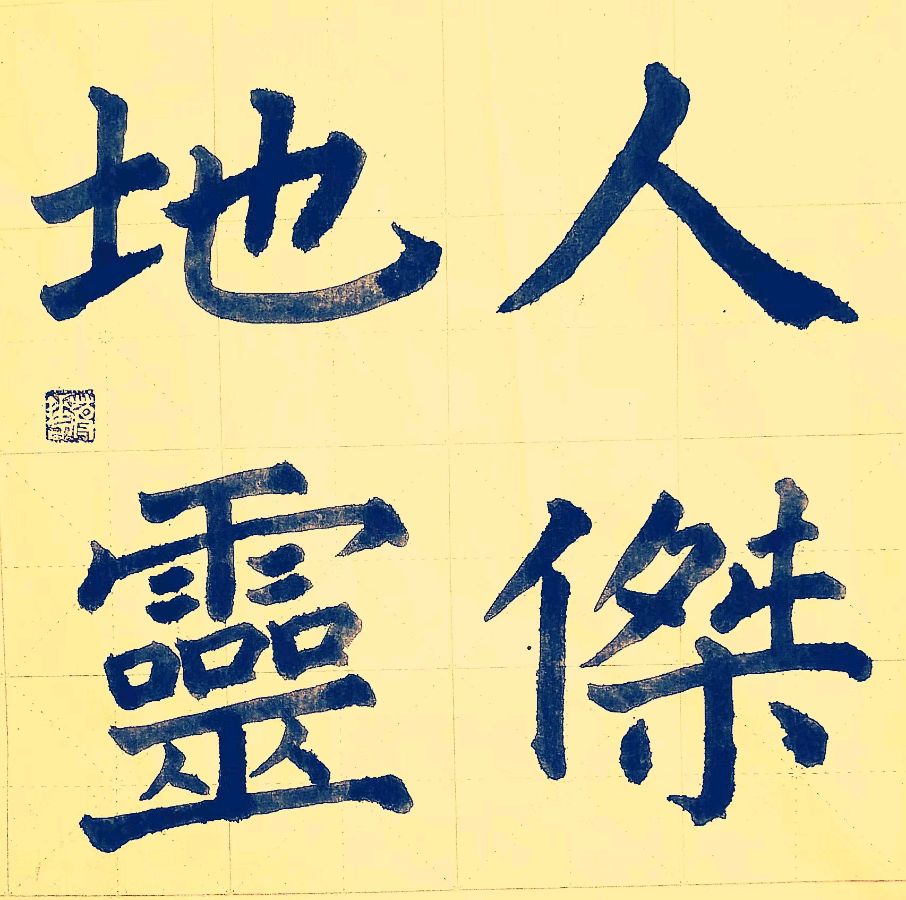 人傑
地靈